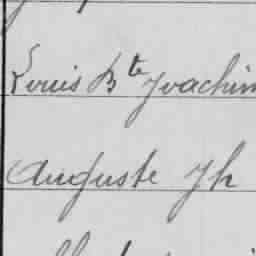 Louis Bte Joachim
Auguste Jh